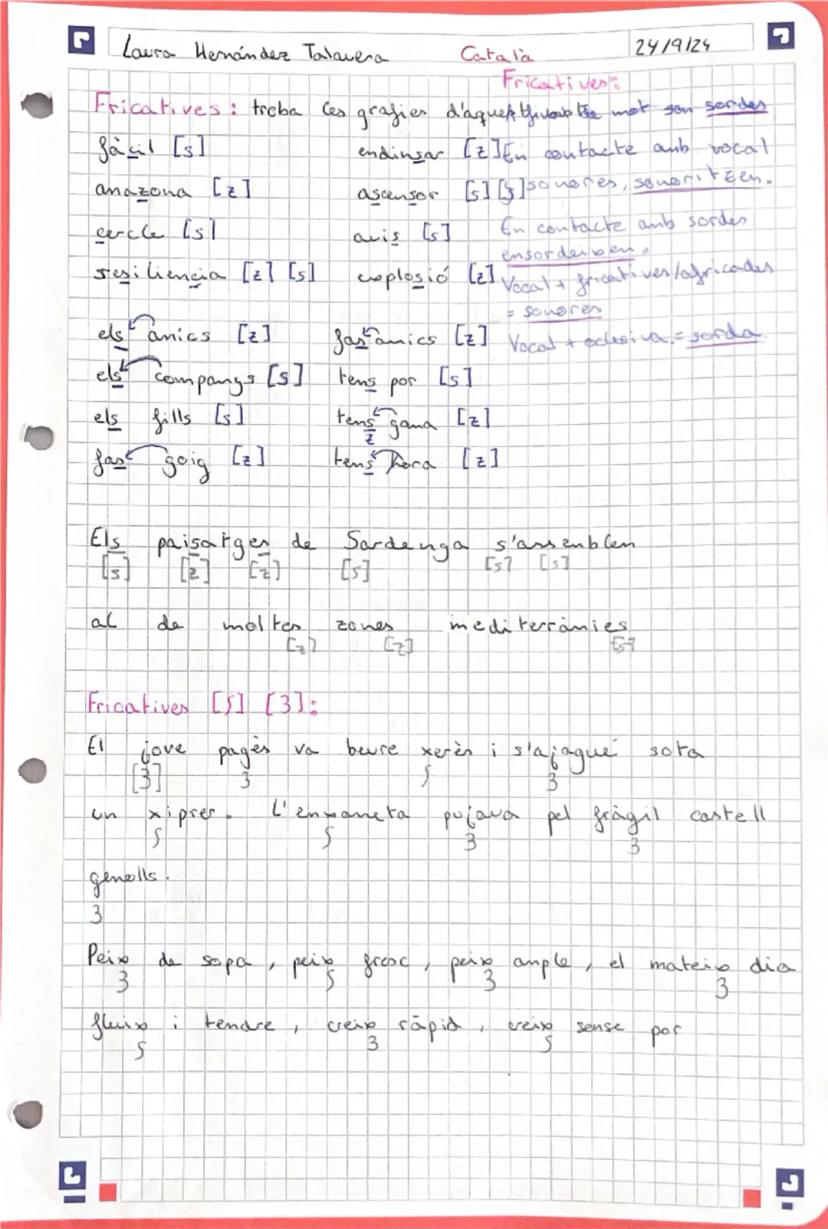 Laura Hernández Talavera Català 24/9/24
Fricatives:
Fricatives: troba les grafies d'aquest mot son sordes
fàcil [s] endinsar [z] En contacte amb vocal
amazona [z] ascensor [s] [s] sonores, sonoritzen.
cercle [s] avis [s] En contacte amb sordes
ensordeixen.
resiliencia [z] [s] explosió [z] Vocal + fricatives/africades
= sonores
els amics [z] fas amics [z] Vocal + oclusiva = sorda.
els companys [s] tens por [s]
els fills [s] tens gana [z]
z
fas goig [z] tens hora [z]
Els paisatges de Sardenga s'assemblen
[s] [z] [z] [s] [s] [s]
al de moltes zones mediterrànies
[z] [z] [s]
Fricatives [ʃ] [ʒ]:
El jove pagès va beure xerès i s'ajagué sota
[ʒ] ʒ ʃ ʒ
un xiprer. L'enxaneta pujava pel fràgil castell
ʃ ʃ ʒ ʒ
genolls.
ʒ
Peix de sopa, peix fresc, peix ample, el mateix dia
ʒ ʃ ʒ ʒ
fluix i tendre, creix ràpid, creix sense por
ʃ ʒ ʃ